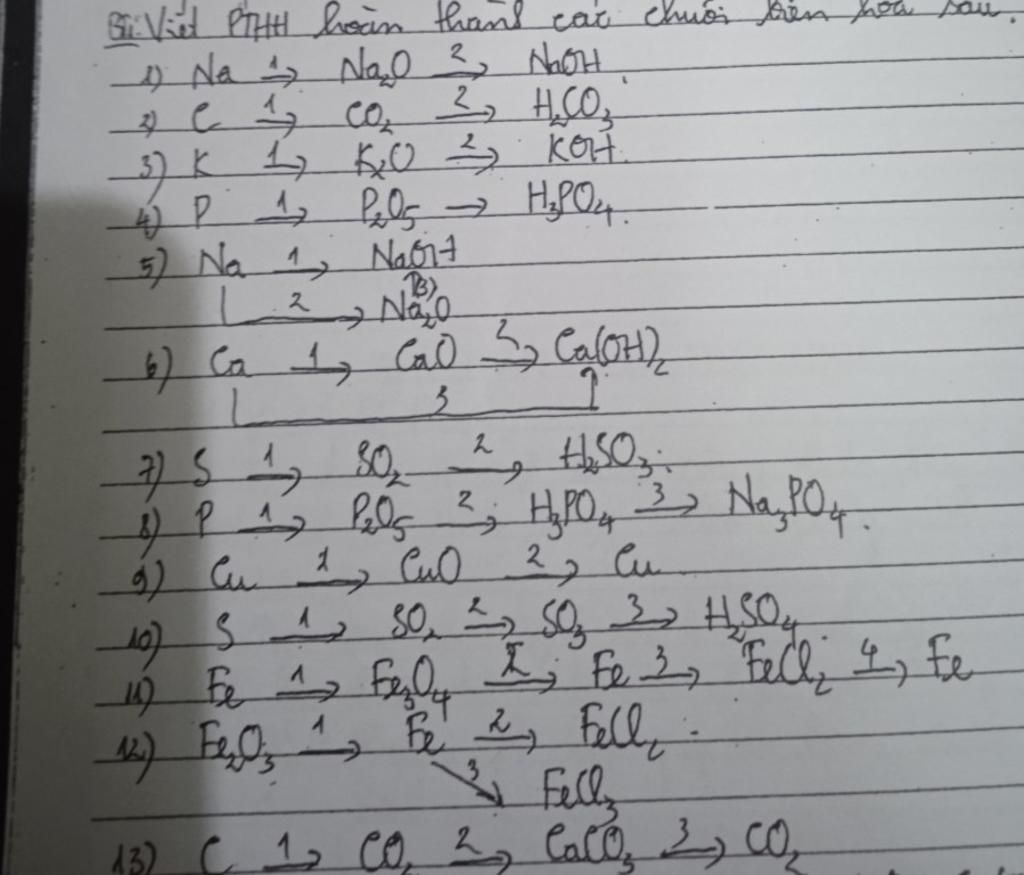 Bài: Viết PTHH hoàn thành các chuỗi biến hóa sau.
1) Na 1→ Na₂O 2→ NaOH
2) C 1→ CO₂ 2→ H₂CO₃
3) K 1→ K₂O 2→ KOH.
4) P 1→ P₂O₅ → H₃PO₄.
5) Na 1→ NaOH
(3)
2→ Na₂O
6) Ca 1→ CaO 2→ Ca(OH)₂
3
7) S 1→ SO₂ 2→ H₂SO₃.
8) P 1→ P₂O₅ 2→ H₃PO₄ 3→ Na₃PO₄.
9) Cu 1→ CuO 2→ Cu
10) S 1→ SO₂ 2→ SO₃ 3→ H₂SO₄
11) Fe 1→ Fe₃O₄ 2→ Fe 3→ FeCl₂ 4→ Fe
12) Fe₂O₃ 1→ Fe 2→ FeCl₂.
3→ FeCl₃
13) C 1→ CO₂ 2→ CaCO₃ 3→ CO₂